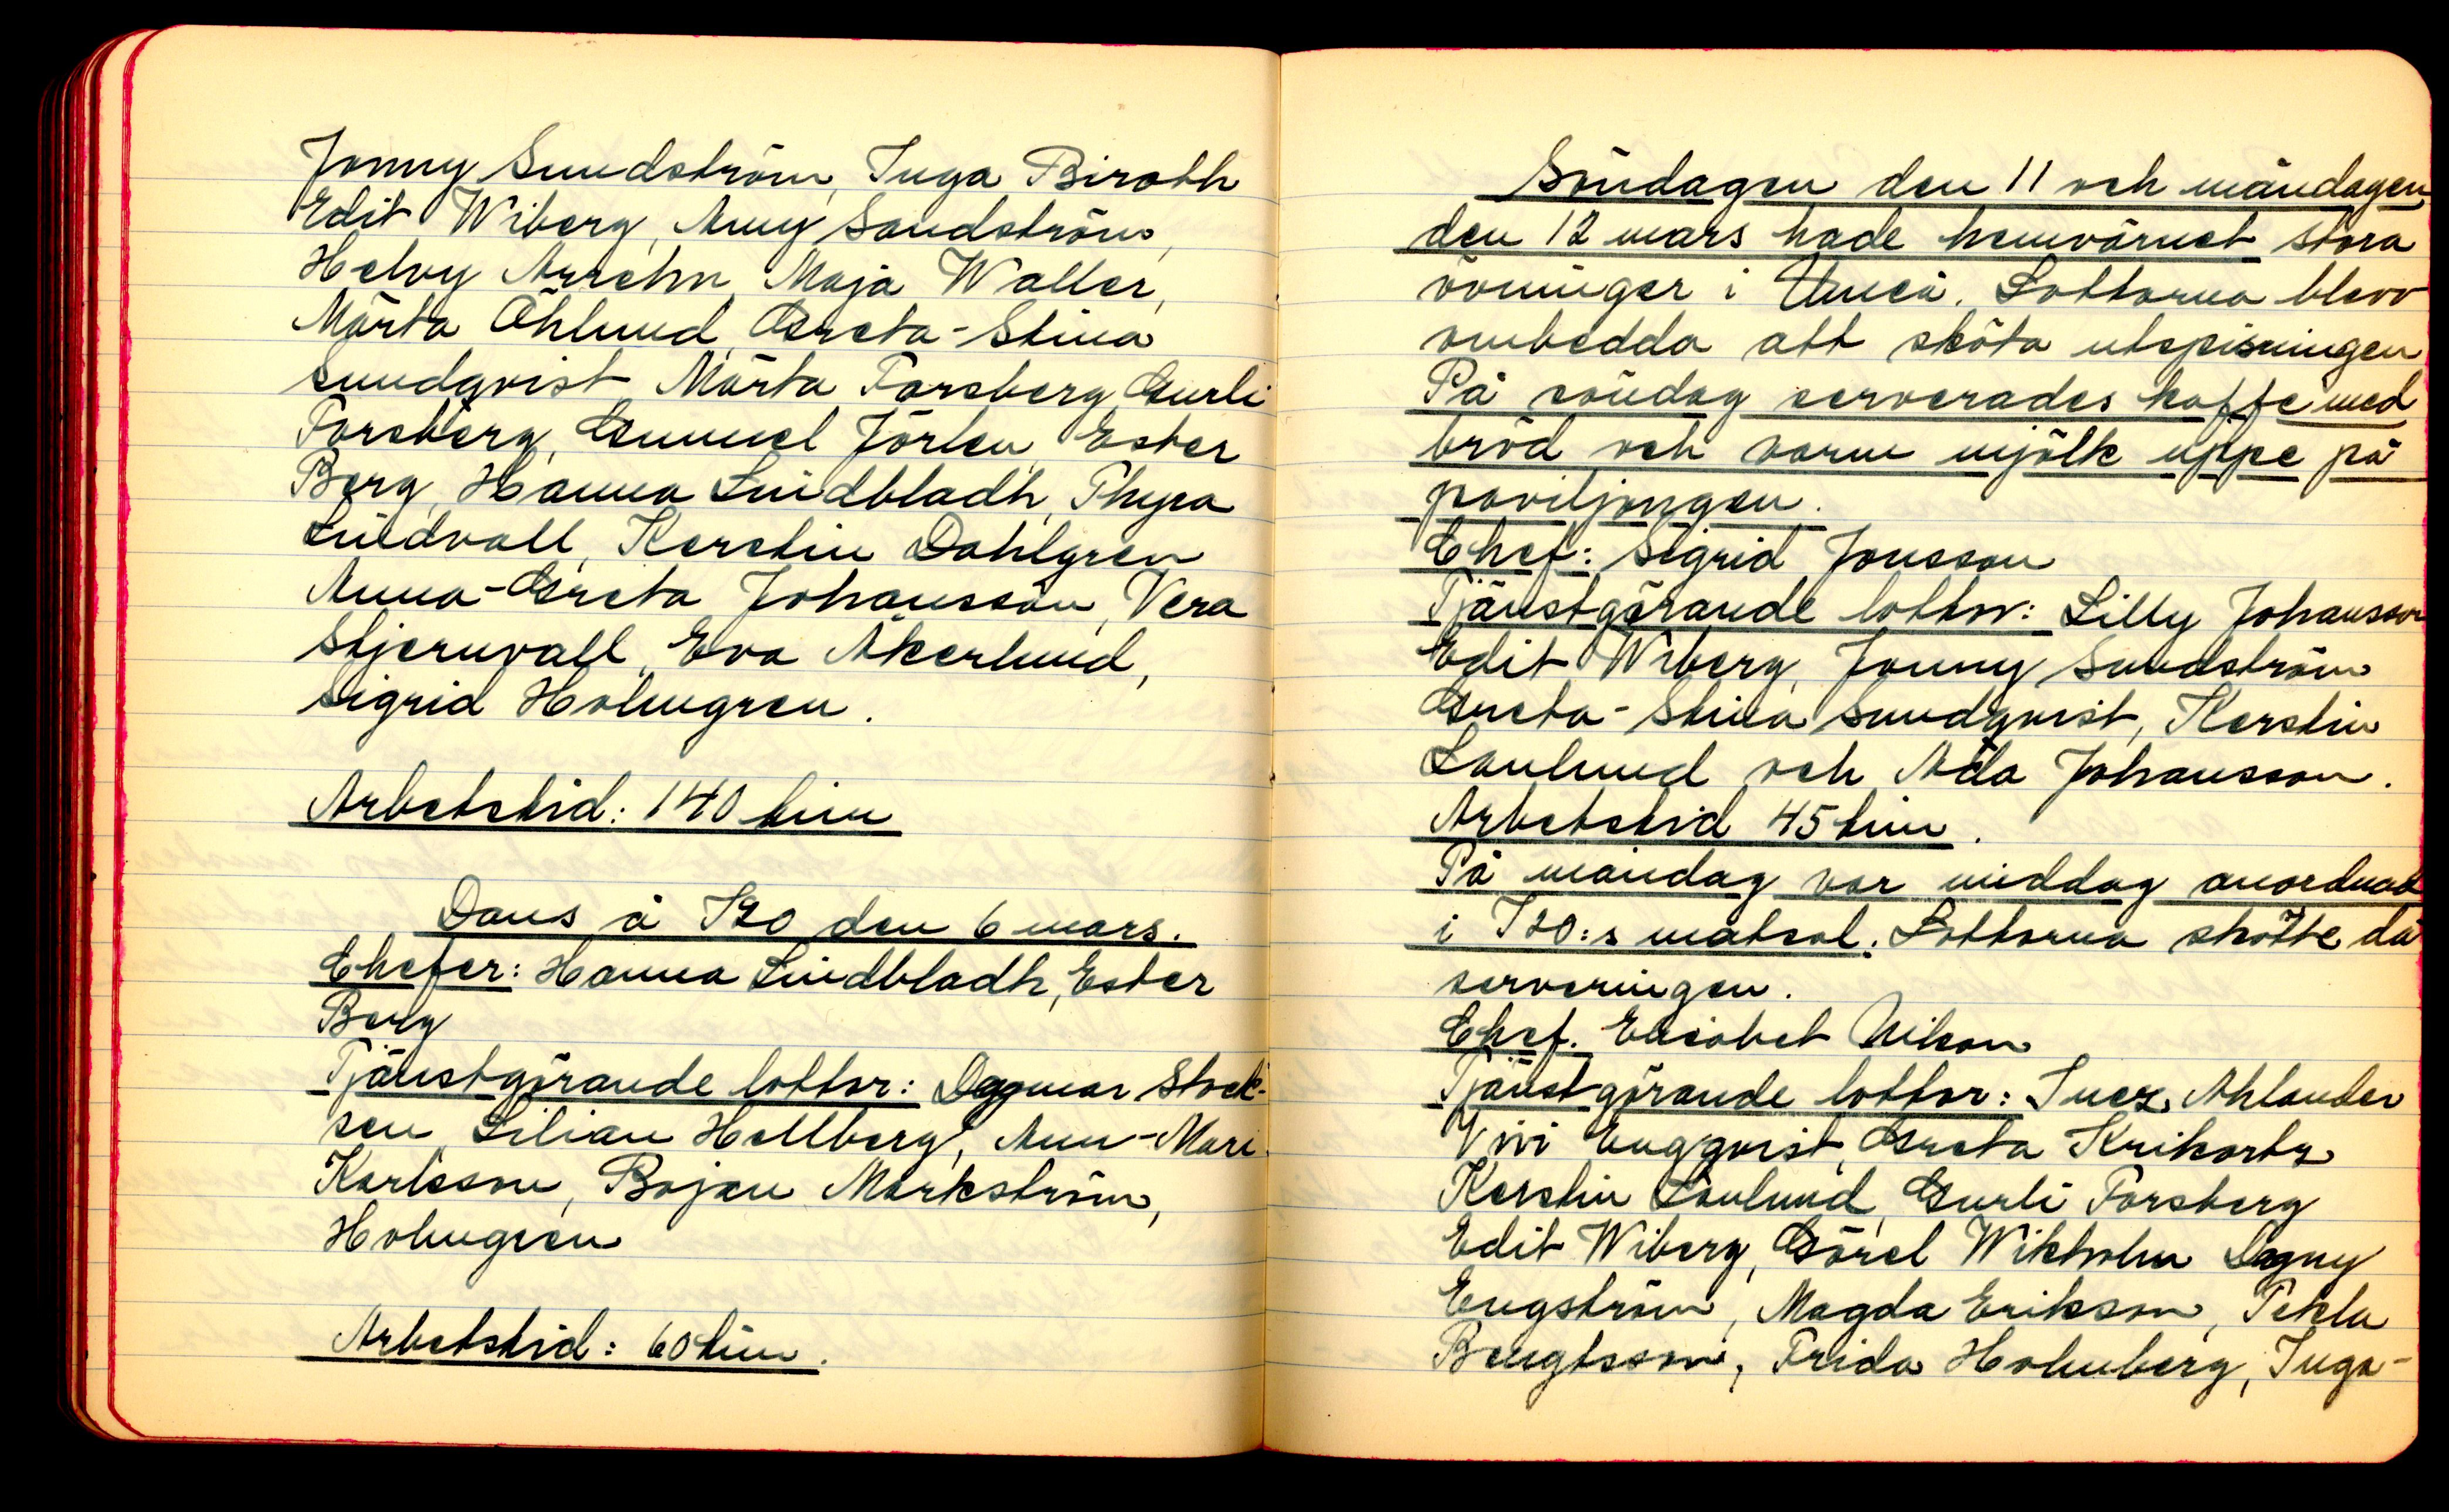 Jonny Sundström, Inga Biroth
Edit Wiberg, Anny Sandström,
Helvy Arrehn, Maja Waller,
Märta Öhlund, Greta-Stina
Sundqvist, Märta Forsberg, Gurli
Forsberg, Gunnel Jörlén, Ester
Berg, Hanna Lindbladh, Thyra
Lindvall, Kerstin Dahlgren
Anna-Greta Johansson, Vera
Stjernvall, Eva Åkerlund,
Sigrid Holmgren.
Arbetstid: 140 tim
Dans å I20 den 6 mars.
Chefer: Hanna Lindbladh, Ester
Berg
Tjänstgörande lottor: Dagmar Stock-
sen, Lilian Hellberg, Ann-Mari
Karlsson, Bojan Markström,
Holmgren
Arbetstid: 60 tim.
Söndagen den 11 och måndagen
den 12 mars hade hemvärnet stora
övningar i Umeå. Lottorna blevo
ombedda att sköta utspisningen
På söndag serverades kaffe med
bröd och varm mjölk uppe på
paviljongen.
Chef: Sigrid Jonsson
Tjänstgörande lottor: Lilly Johansson
Edit Wiberg, Jonny Sundström
Greta-Stina Sundqvist, Kerstin
Lönlund och Ada Johansson.
Arbetstid 45 tim.
På måndag var middag anordnad
i I20:s matsal. Lottorna skötte då
serveringen.
Chef. Elisabet Nilson
Tjänstgörande lottor: Inez Ahlander
Vivi Engqvist, Greta Krikortz
Kerstin Lönlund, Gurli Forsberg
Edit Wiberg, Görel Wikholm Dagny
Engström, Magda Erikson, Tekla
Bengtsson, Frida Holmberg, Inga-